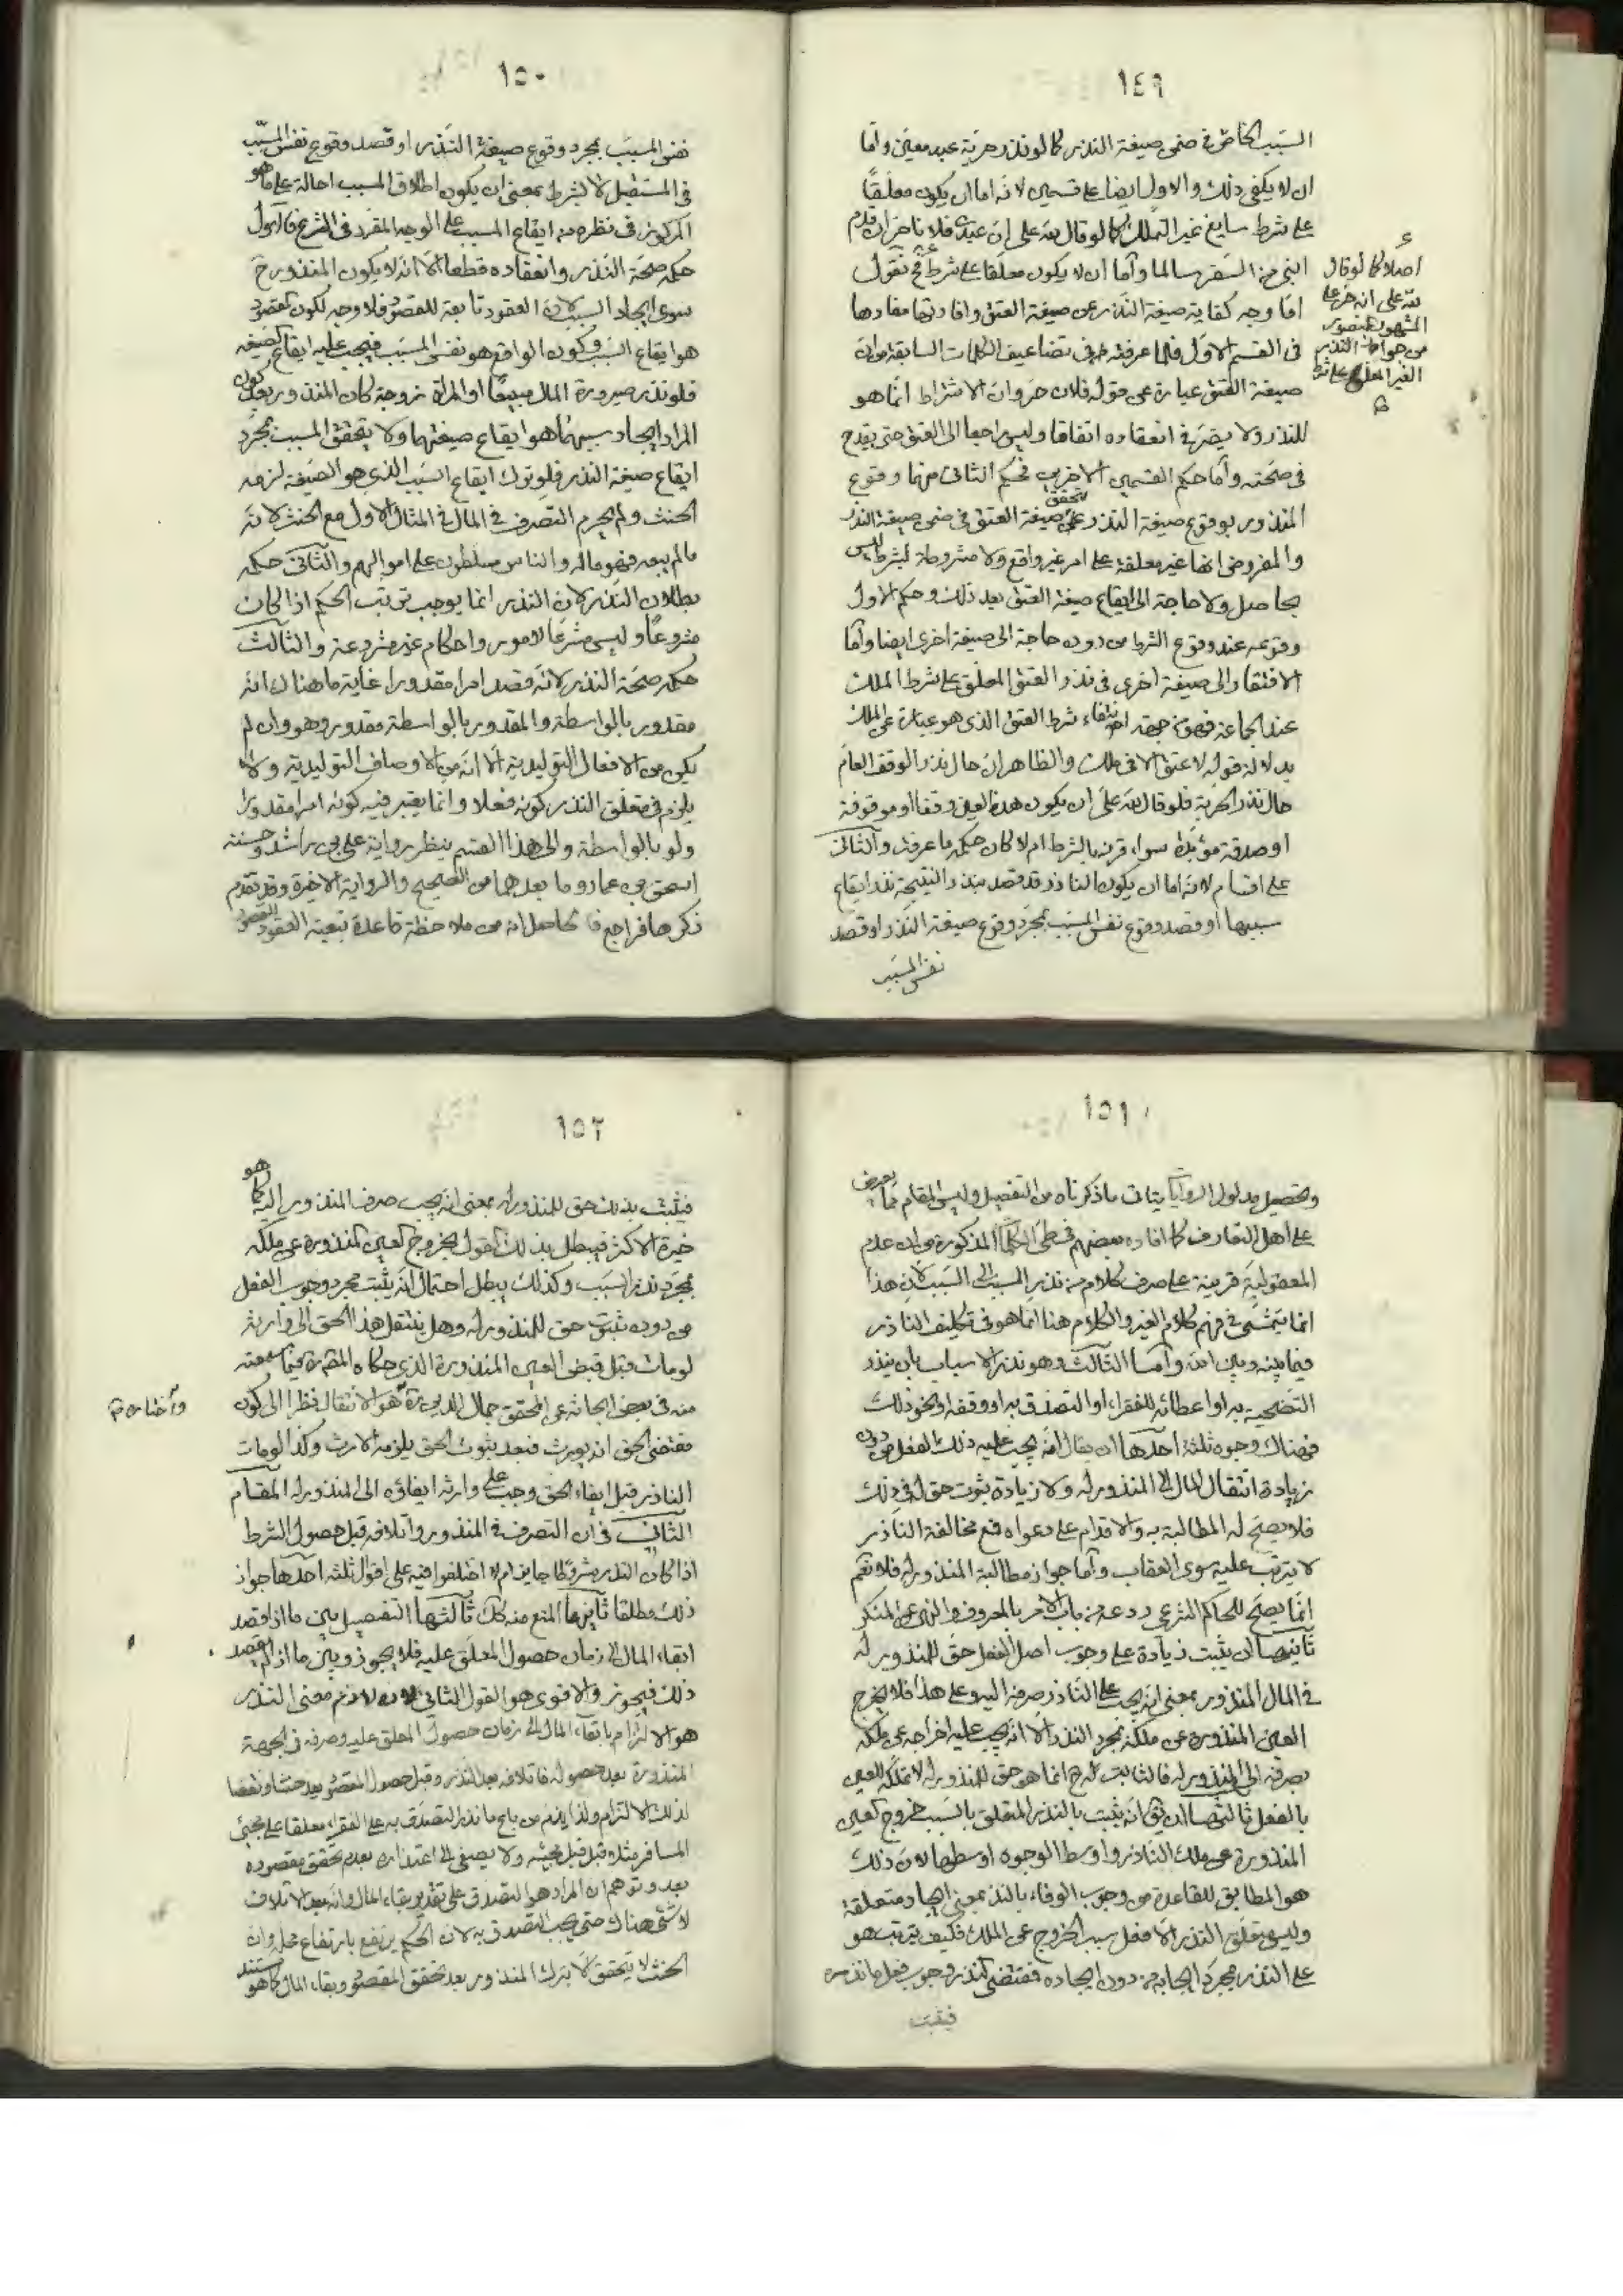 ١٤٩
السبب الخاص في ضمن صيغة النذر كما لو نذر حرية عبد معين واما
ان لا يكفى ذلك والاول ايضا على قسمين لانه اما ان يكون معلقا
على شرط سايغ غير التملك كما لو قال لله على ان عبدى فلانا حر ان قدم
ابنى من السفر سالما واما ان لا يكون معلقا على شرط فح نقول
اما وجه كفاية صيغة النذر عن صيغة العتق وافادتها مفادها
فى القسم الاول فلما عرفته فى تضاعيف الكلمات السابقة من ان
صيغة العتق عبارة عن قوله فلان حر وان الاشتراط انما هو
للنذر ولا يضر فى انعقاده اتفاقا وليس راجعا الى العتق حتى يقدح
فى صحته واما حكم القسمين الاخرين فحكم الثانى منهما وقوع
المنذور بوقوع صيغة النذر لتحقق صيغة العتق فى ضمن صيغة النذر
والمفروض انها غير معلقة على امر غير واقع ولا مشروطة بشرط ليس
بحاصل ولا حاجة الى ايقاع صيغة العتق بعد ذلك وحكم الاول
وقوعه عند وقوع الشرط من دون حاجة الى صيغة اخرى ايضا واما
الافتقار الى صيغة اخرى فى نذر العتق المعلق على شرط الملك
عند الجماعة فهو من جهة انتفاء شرط العتق الذى هو عبارة عن الملك
بدلالة قوله لا عتق الا فى ملك والظاهر ان حال نذر الوقف العام
حال نذر الحرية فلو قال لله على ان يكون هذه العين وقفا او موقوفة
او صدقة مؤبدة سواء قرنه بالشرط ام لا كان حكمه ما عرفت والثانى
على اقسام لانه اما ان يكون الناذر قد قصد بنذر النتيجة نذر ايقاع
سببها او قصد وقوع نفس المسبب بمجرد وقوع صيغة النذر او قصد
نفس المسبب
اصلا كما لو قال
لله على انه حر على
المشهور المنصور
من جواز النذر
الغير المعلق على شرط
١٥٠
نفس المسبب بمجرد وقوع صيغة النذر او قصد وقوع نفس المسبب
فى المستقبل لا بشرط بمعنى ان يكون اطلاق المسبب احالة على ما هو
المركوز فى نظره من ايقاع المسبب على الوجه المقرر فى الشرع فالاول
حكمه صحة النذر وانعقاده قطعا الا انه لا يكون المنذور ح
سوى ايجاد السبب لان العقود تابعة للقصود فلا وجه لكون المقصود
هو ايقاع السبب وكون الواقع هو نفس المسبب فيجب عليه ايقاع الصيغة
فلو نذر صيرورة المال مبيعا او المراة زوجة كان المنذور بعد كون
المراد ايجاد سببهما هو ايقاع صيغتهما ولا يتحقق المسبب بمجرد
ايقاع صيغة النذر فلو ترك ايقاع السبب الذى هو الصيغة لزمه
الحنث ولم يحرم التصرف فى المال فى المثال الاول مع الحنث لانه
ما لم يبعه فهو ماله والناس مسلطون على اموالهم والثانى حكمه
بطلان النذر لان النذر انما يوجب ترتب الحكم اذا كان
مشروعا وليس مشرعا لامور واحكام غير مشروعة والثالث
حكمه صحة النذر لانه قصد امرا مقدورا غاية ما هناك انه
مقدور بالواسطة والمقدور بالواسطة مقدور وهو وان لم
يكن من الافعال التوليدية الا انه من الاوصاف التوليدية ولا
يلزم فى متعلق النذر كونه فعلا وانما يعتبر فيه كونه امرا مقدورا
ولو بالواسطة والى هذا القسم ينظر رواية على بن راشد وحسنة
اسحق بن عمار وما بعدهما من الصحيح والرواية الاخيرة وقد تقدم
ذكرها فراجع فالحاصل انه من ملاحظة قاعدة تبعية العقود للقصود
١٥١
وتحصيل مدلول الروايات يتاتى ما ذكرناه من التفصيل وليس المقام مما يعرض
على اهل التعارف كما افاده بعضهم فى طى الكلمات المذكورة من ان عدم
المعقولية قرينة على صرف كلامه من نذر المسبب الى السبب لان هذا
انما يتمشى فى فهم كلام الغير والكلام هنا انما هو فى تكليف الناذر
فيما بينه وبين الله واما الثالث وهو نذر الاسباب بان ينذر
التضحية به او اعطائه للفقراء او التصدق به او وقفه او نحو ذلك
فهناك وجوه ثلثة احدها ان يقال انه يجب عليه ذلك الفعل من دون
زيادة انتقال المال الى المنذور له ولا زيادة ثبوت حق له فى ذلك
فلا يصح له المطالبة به والاقدام على دعواه فمع مخالفة الناذر
لا يترتب عليه سوى العقاب واما جواز مطالبة المنذور له فلا نعم
انما يصح للحاكم الشرعى ردعه من باب الامر بالمعروف والنهى عن المنكر
ثانيها ان يثبت زيادة على وجوب اصل الفعل حق للمنذور له
فى المال المنذور بمعنى انه يجب على الناذر صرفه اليه وعلى هذا فلا يخرج
العين المنذورة عن ملكه بمجرد النذر الا انه يجب عليه اخراجه عن ملكه
بصرفه الى المنذور له فالثابت له ح انما هو حق للمنذور له لا تملكه للعين
بالفعل ثالثها ان يق انه يثبت بالنذر المتعلق بالسبب خروج العين
المنذورة عن ملك الناذر واوسط الوجوه اوسطها لان ذلك
هو المطابق للقاعدة من وجوب الوفاء بالنذر بمعنى ايجاد متعلقه
وليس متعلق النذر الا فعل سبب الخروج عن الملك فكيف يترتب هو
على النذر بمجرد ايجابه من دون ايجاده فمقتضى النذر وجوب فعل ما نذره
فيثبت
١٥٢
فيثبت بذلك حق للمنذور له بمعنى انه يجب صرف المنذور اليه كما هو
خيرة الاكثر فيبطل بذلك القول بخروج العين المنذورة عن ملكه
بمجرد نذر السبب وكذلك يبطل احتمال انه يثبت مجرد وجوب الفعل
من دون ثبوت حق للمنذور له وهل ينتقل هذا الحق الى وارثه
لو مات قبل قبض العين المنذورة الذى حكاه المقرر فيما سمعته
منه فى بعض ابحاثه عن المحقق جمال الدين ره هو الانتقال نظرا الى كون
مقتضى الحق ان يورث فبعد ثبوت الحق يلزمه الارث وكذا لو مات
الناذر قبل ايفاء الحق وجب على وارثه ايفاؤه الى المنذور له المقام
الثانى فى ان التصرف فى المنذور واتلافه قبل حصول الشرط
اذا كان النذر مشروطا جايز ام لا اختلفوا فيه على اقوال ثلثة احدها جواز
ذلك مطلقا ثانيها المنع منه كك ثالثها التفصيل بين ما اذا قصد
ابقاء المال الى زمان حصول المعلق عليه فلا يجوز وبين ما اذا لم يقصد
ذلك فيجوز والاقوى هو القول الثانى لان لازم معنى النذر
هو الالتزام بابقاء المال الى زمان حصول المعلق عليه وصرفه فى الجهة
المنذورة بعد حصوله فاتلافه بعد النذر وقبل حصول المقصود يعد حنثا ونقضا
لذلك الالتزام ولذا يذم من باع ما نذر التصدق به على الفقراء معلقا على مجئ
المسافر مثلا وقبل مجيئه ولا يصغى الى اعتذاره بعدم تحقق مقصوده
بعد وتوهم ان المراد هو التصدق على تقدير بقاء المال وانه بعد الاتلاف
لا شئ هناك حتى يجب التصدق به لان الحكم يرتفع بارتفاع محله وان
الحنث لا يتحقق الا بترك المنذور بعد تحقق المقصود وبقاء المال كما هو مستند